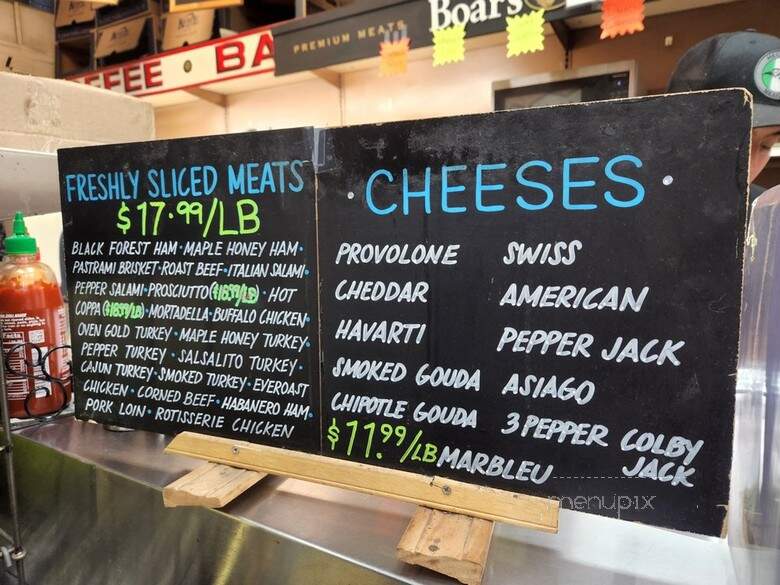 Boar's
PREMIUM MEATS
FFEE BA
FRESHLY SLICED MEATS
$17.99/LB
BLACK FOREST HAM • MAPLE HONEY HAM •
PASTRAMI BRISKET • ROAST BEEF • ITALIAN SALAMI •
PEPPER SALAMI • PROSCIUTTO • HOT
COPPA • MORTADELLA • BUFFALO CHICKEN •
OVEN GOLD TURKEY • MAPLE HONEY TURKEY •
PEPPER TURKEY • SALSALITO TURKEY •
CAJUN TURKEY • SMOKED TURKEY • EVEROAST
CHICKEN • CORNED BEEF • HABANERO HAM •
PORK LOIN • ROTISSERIE CHICKEN
• CHEESES •
PROVOLONE
CHEDDAR
HAVARTI
SMOKED GOUDA
CHIPOTLE GOUDA
$11.99/LB
MARBLEU
SWISS
AMERICAN
PEPPER JACK
ASIAGO
3 PEPPER COLBY
JACK
menupix